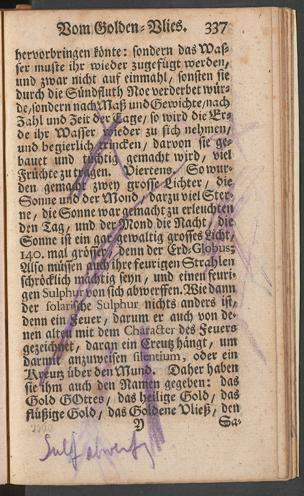 Vom Golden-Vlies. 337
hervorbringen könte: sondern das Waß-
ser muste ihr wieder zugefügt werden,
und zwar nicht auf einmahl, sonsten sie
durch die Sündfluth Noe verderbet wür-
de/sondern nach Maß und Gewichte/nach
Zahl und Zeit der Tage, so wird die Er-
de ihr Wasser wieder zu sich nehmen/
und begierlich trincken, darvon sie ge-
bauet und tüchtig gemacht wird, viel
Früchte zu tragen. Viertens, So wur-
den gemacht zwey grosse Lichter, die
Sonne und der Mond, darzu viel Ster-
ne, die Sonne war gemacht zu erleuchten
den Tag, und der Mond die Nacht, die
Sonne ist ein gar gewaltig grosses Licht,
140. mal grösser, denn der Erd-Globus:
Also müssen auch ihre feurigen Strahlen
schröcklich mächtig seyn, und einen feuri-
gen Sulphur von sich abwerffen. Wie dann
der solarische Sulphur nichts anders ist,
denn ein Feuer, darum er auch von de-
nen alten mit dem Character des Feuers
gezeichnet, daran ein Creutz hängt, um
darmit anzuweisen silentium, oder ein
Kreutz über den Mund. Daher haben
sie ihm auch den Namen gegeben: das
Gold GOttes, das heilige Gold, das
flüßige Gold, das Goldene Vließ, den
Y Sa-